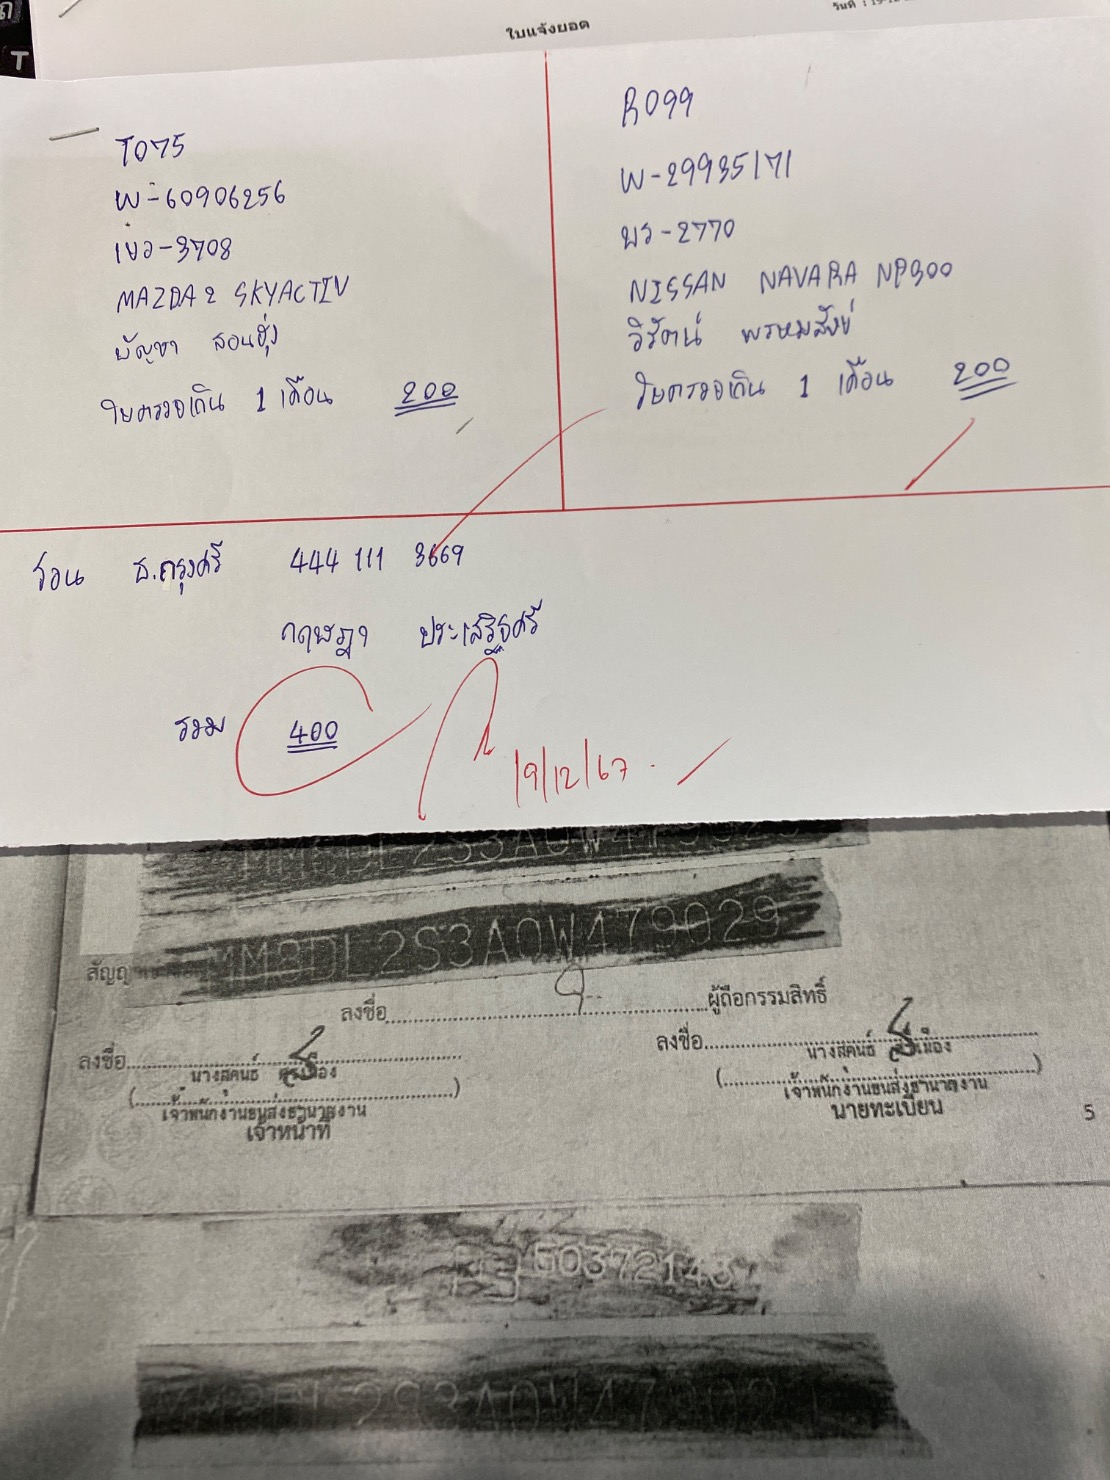 ใบแจ้งยอด
T075
W-60906256
เขว-3708
MAZDA 2 SKYACTIV
บัญชา สอนฮุ่ง
ใบตรวจเกิน 1 เดือน 200
R099
W-29935171
บว-2770
NISSAN NAVARA NP300
วิรัตน์ พรหมสังข์
ใบตรวจเกิน 1 เดือน 200
โอน ธ.กรุงศรี 444 111 3669
กฤษฎา ประเสริฐศรี
รวม 400
19/12/67
MM8DL2S3A0W479029
ลงชื่อ ผู้ถือกรรมสิทธิ์
ลงชื่อ
นางสุคนธ์
เจ้าพนักงานขนส่งชำนาญงาน
เจ้าหน้าที่
ลงชื่อ
นางสุคนธ์
เจ้าพนักงานขนส่งชำนาญงาน
นายทะเบียน
5
50372143